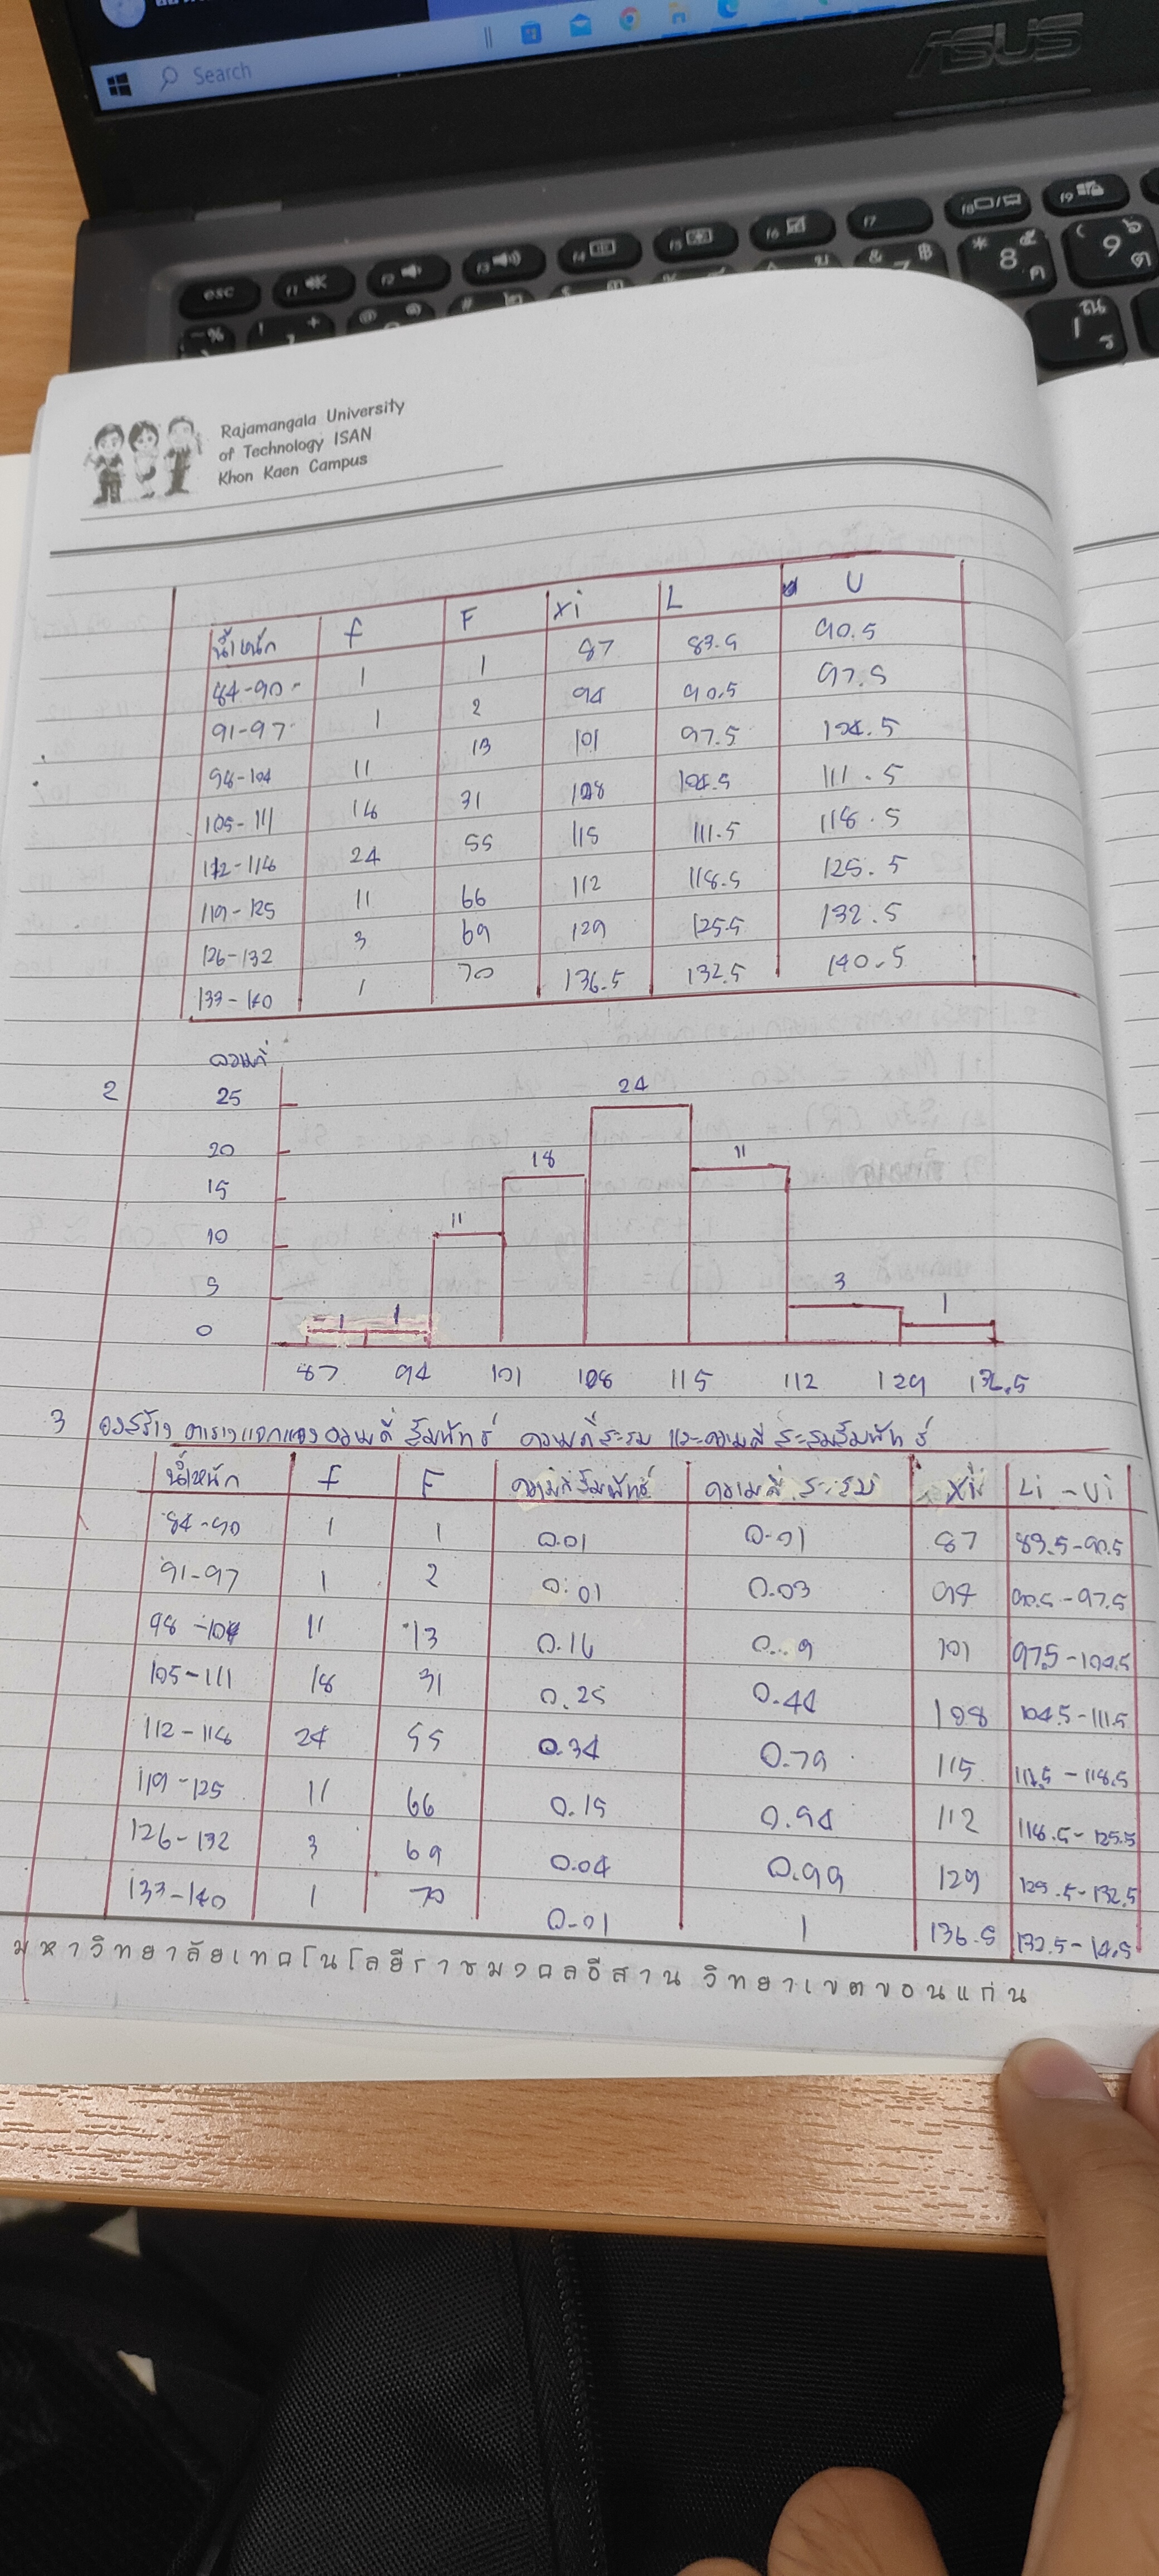 Search
ASUS
esc f1 f2 f3 f4 f5 f6 f7 f8 f9
Rajamangala University
of Technology ISAN
Khon Kaen Campus
น้ำหนัก f F xi L U
84-90 1 1 87 83.5 90.5
91-97 1 2 94 90.5 97.5
98-104 11 13 101 97.5 104.5
105-111 18 31 108 104.5 111.5
112-118 24 55 115 111.5 118.5
119-125 11 66 112 118.5 125.5
126-132 3 69 129 125.5 132.5
133-140 1 70 136.5 132.5 140.5
2
ความถี่
25
20
15
10
5
0
1 1 11 18 24 11 3 1
87 94 101 108 115 112 129 136.5
3 จงสร้าง ตารางแจกแจงความถี่ สัมพัทธ์ ความถี่สะสม และความถี่ สะสมสัมพัทธ์
น้ำหนัก f F ความถี่สัมพัทธ์ ความถี่ สะสม Xi Li - Ui
84-90 1 1 0.01 0.01 87 83.5-90.5
91-97 1 2 0.01 0.03 94 90.5-97.5
98-104 11 13 0.16 101 97.5-104.5
105-111 18 31 0.25 0.44 108 104.5-111.5
112-118 24 55 0.34 0.79 115 111.5-118.5
119-125 11 66 0.15 0.94 112 118.5-125.5
126-132 3 69 0.04 0.99 129 125.5-132.5
133-140 1 70 0.01 1 136.5 132.5-14.5
มหาวิทยาลัยเทคโนโลยีราชมงคลอีสาน วิทยาเขตขอนแก่น